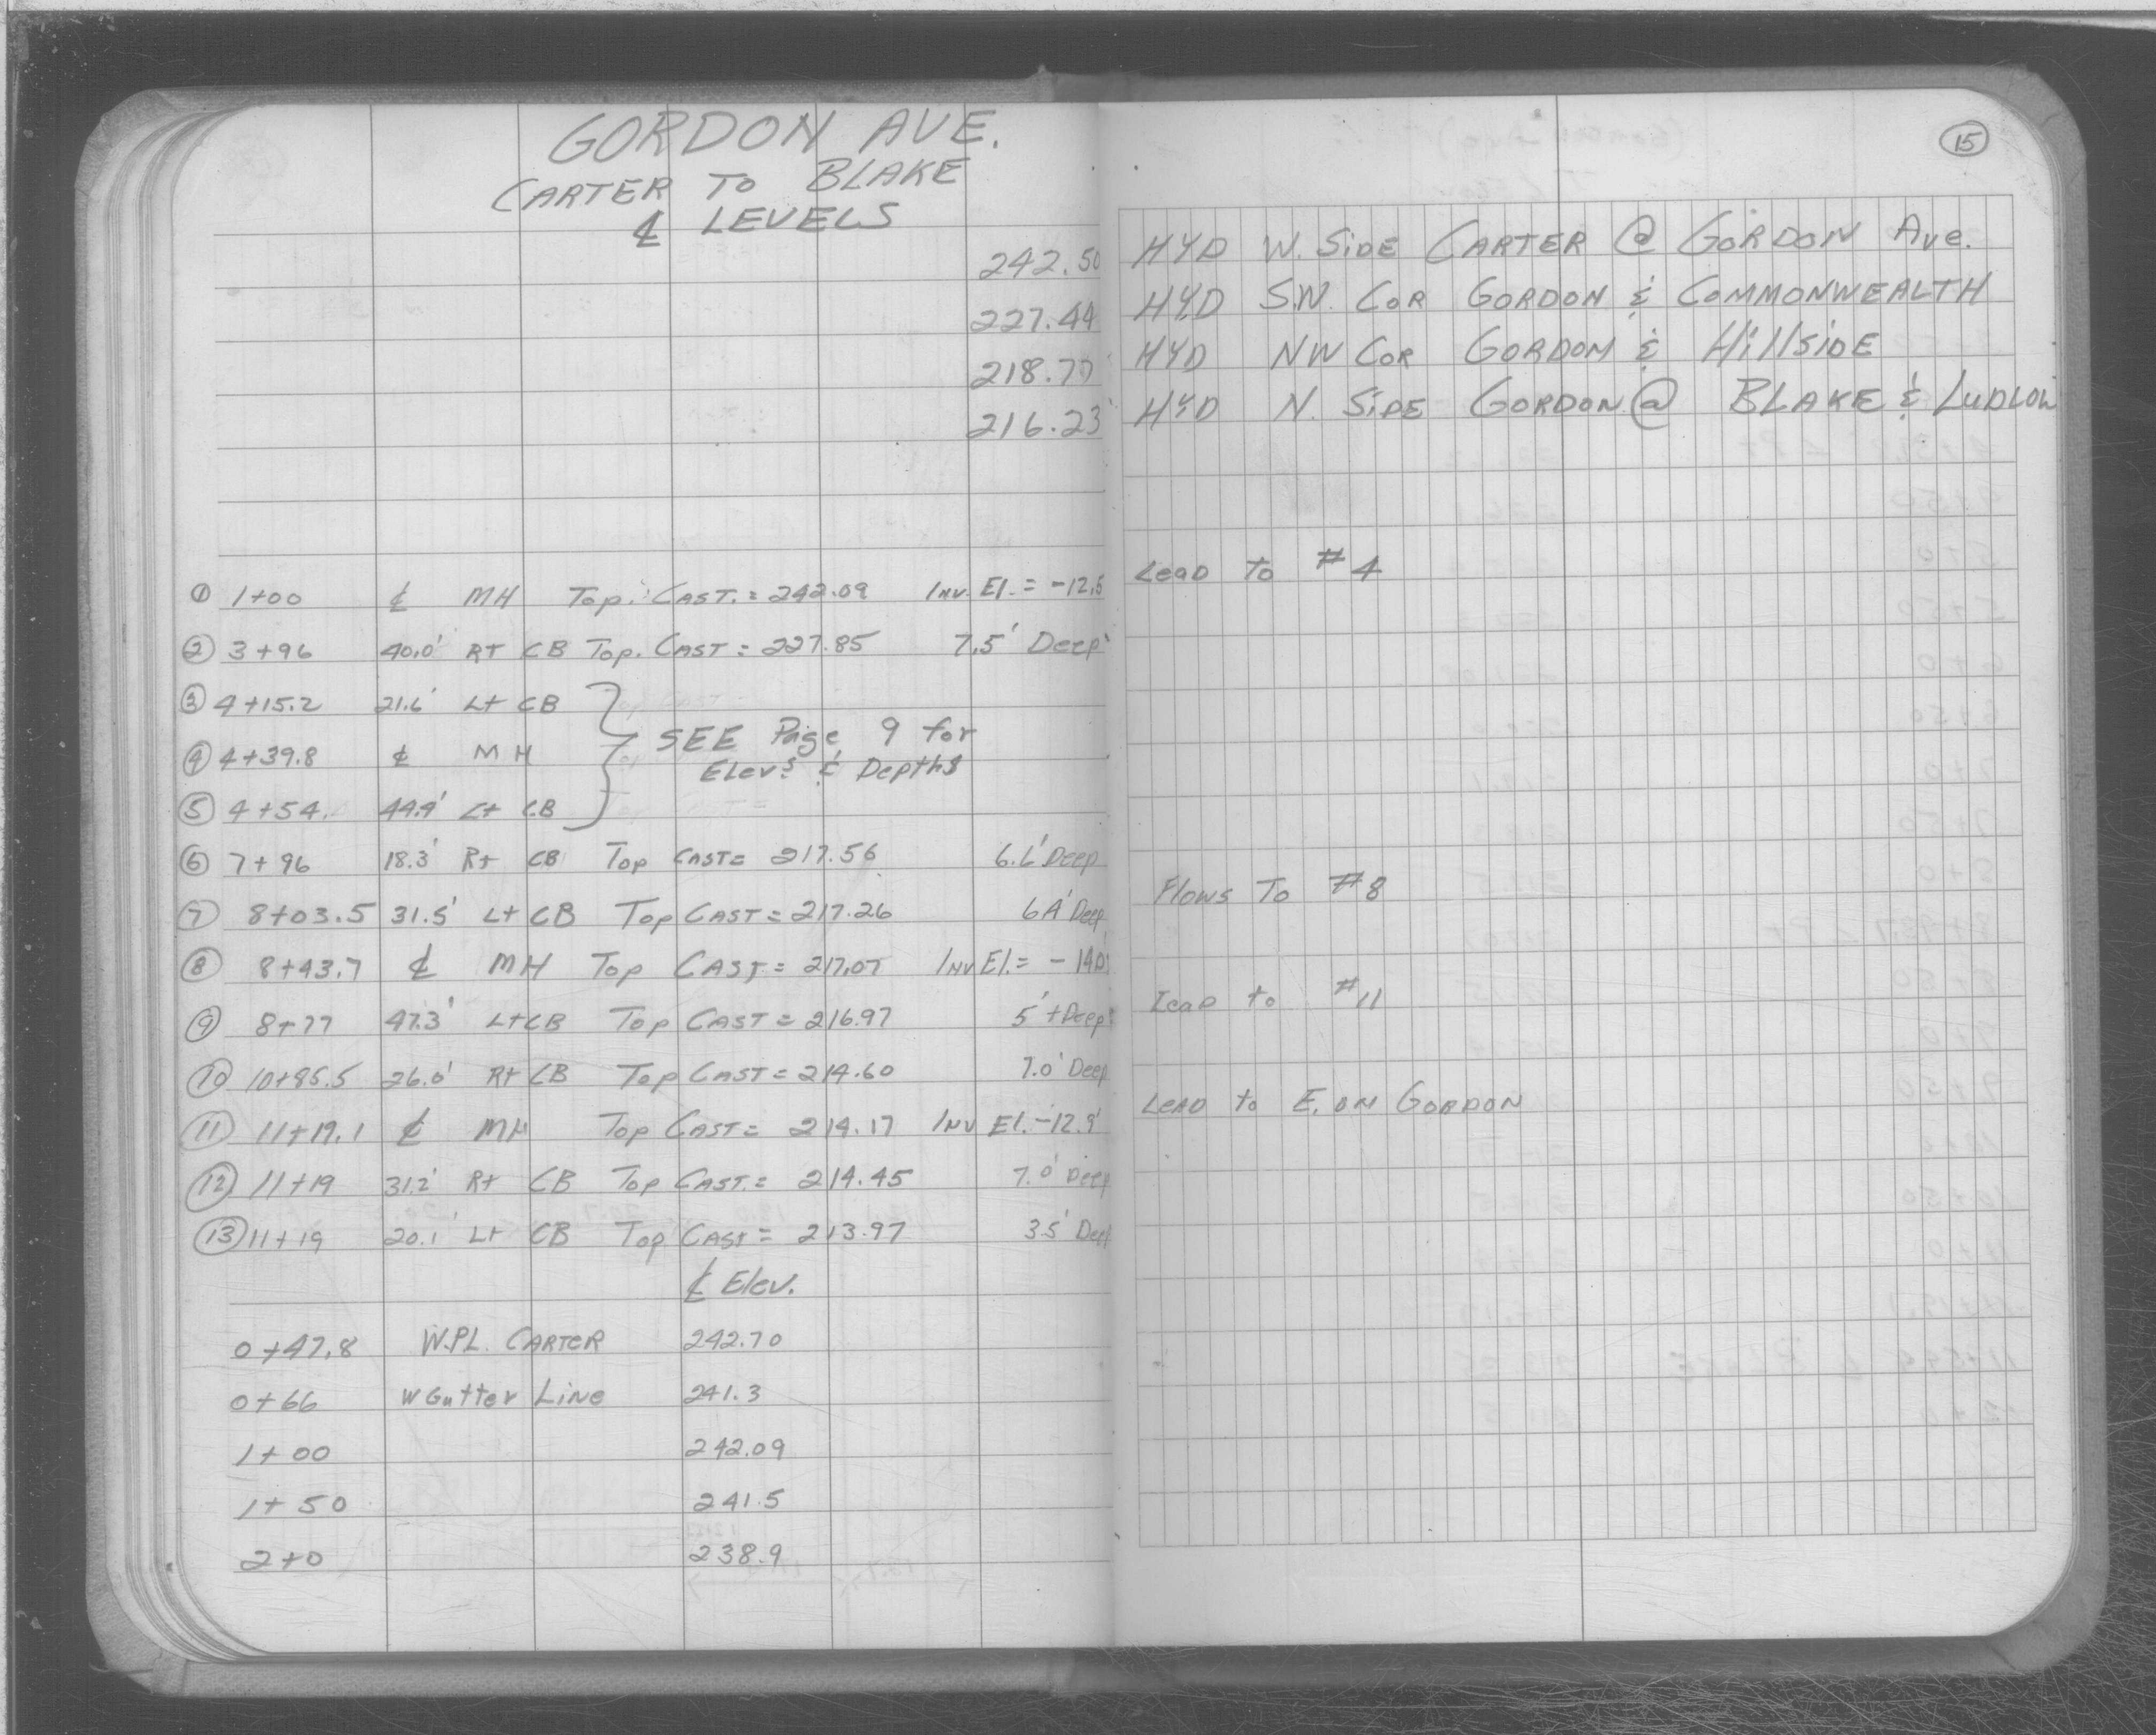 GORDON AVE.
CARTER TO BLAKE
℄ LEVELS
15
242.50 HYD W. SIDE CARTER @ GORDON AVE.
227.44 HYD S.W. COR GORDON & COMMONWEALTH
218.77 HYD NW COR GORDON & HillsiDE
216.23 HYD N. SIDE GORDON @ BLAKE & LUDLOW
① 1+00 ℄ MH Top. CAST. = 242.09 INV. El. = -12.5 Lead to #4
② 3+96 40.0' RT CB Top. CAST = 227.85 7.5' Deep
③ 4+15.2 21.6' Lt CB
④ 4+39.8 ℄ MH
SEE Page 9 for
Elevs & Depths
⑤ 4+54 44.4' Lt CB
⑥ 7+96 18.3' Rt CB Top CAST = 217.56 6.6' Deep
⑦ 8+03.5 31.5' Lt CB Top CAST = 217.26 Deep Flows To #8
⑧ 8+43.7 ℄ MH Top CAST = 217.07 INV El. = -14.0'
⑨ 8+77 47.3' Lt CB Top CAST = 216.97 5'+ Deep Lead to #11
⑩ 10+85.5 26.0' Rt CB Top CAST = 214.60 7.0' Deep
⑪ 11+19.1 ℄ MH Top CAST = 214.17 INV El. -12.9' Lead to E. ON GORDON
⑫ 11+19 31.2' Rt CB Top CAST. = 214.45 7.0' Deep
⑬ 11+19 20.1' Lt CB Top CAST = 213.97 3.5' Deep
℄ Elev.
0+47.8 W.P.L. CARTER 242.70
0+66 W Gutter Line 241.3
1+00 242.09
1+50 241.5
2+0 238.9